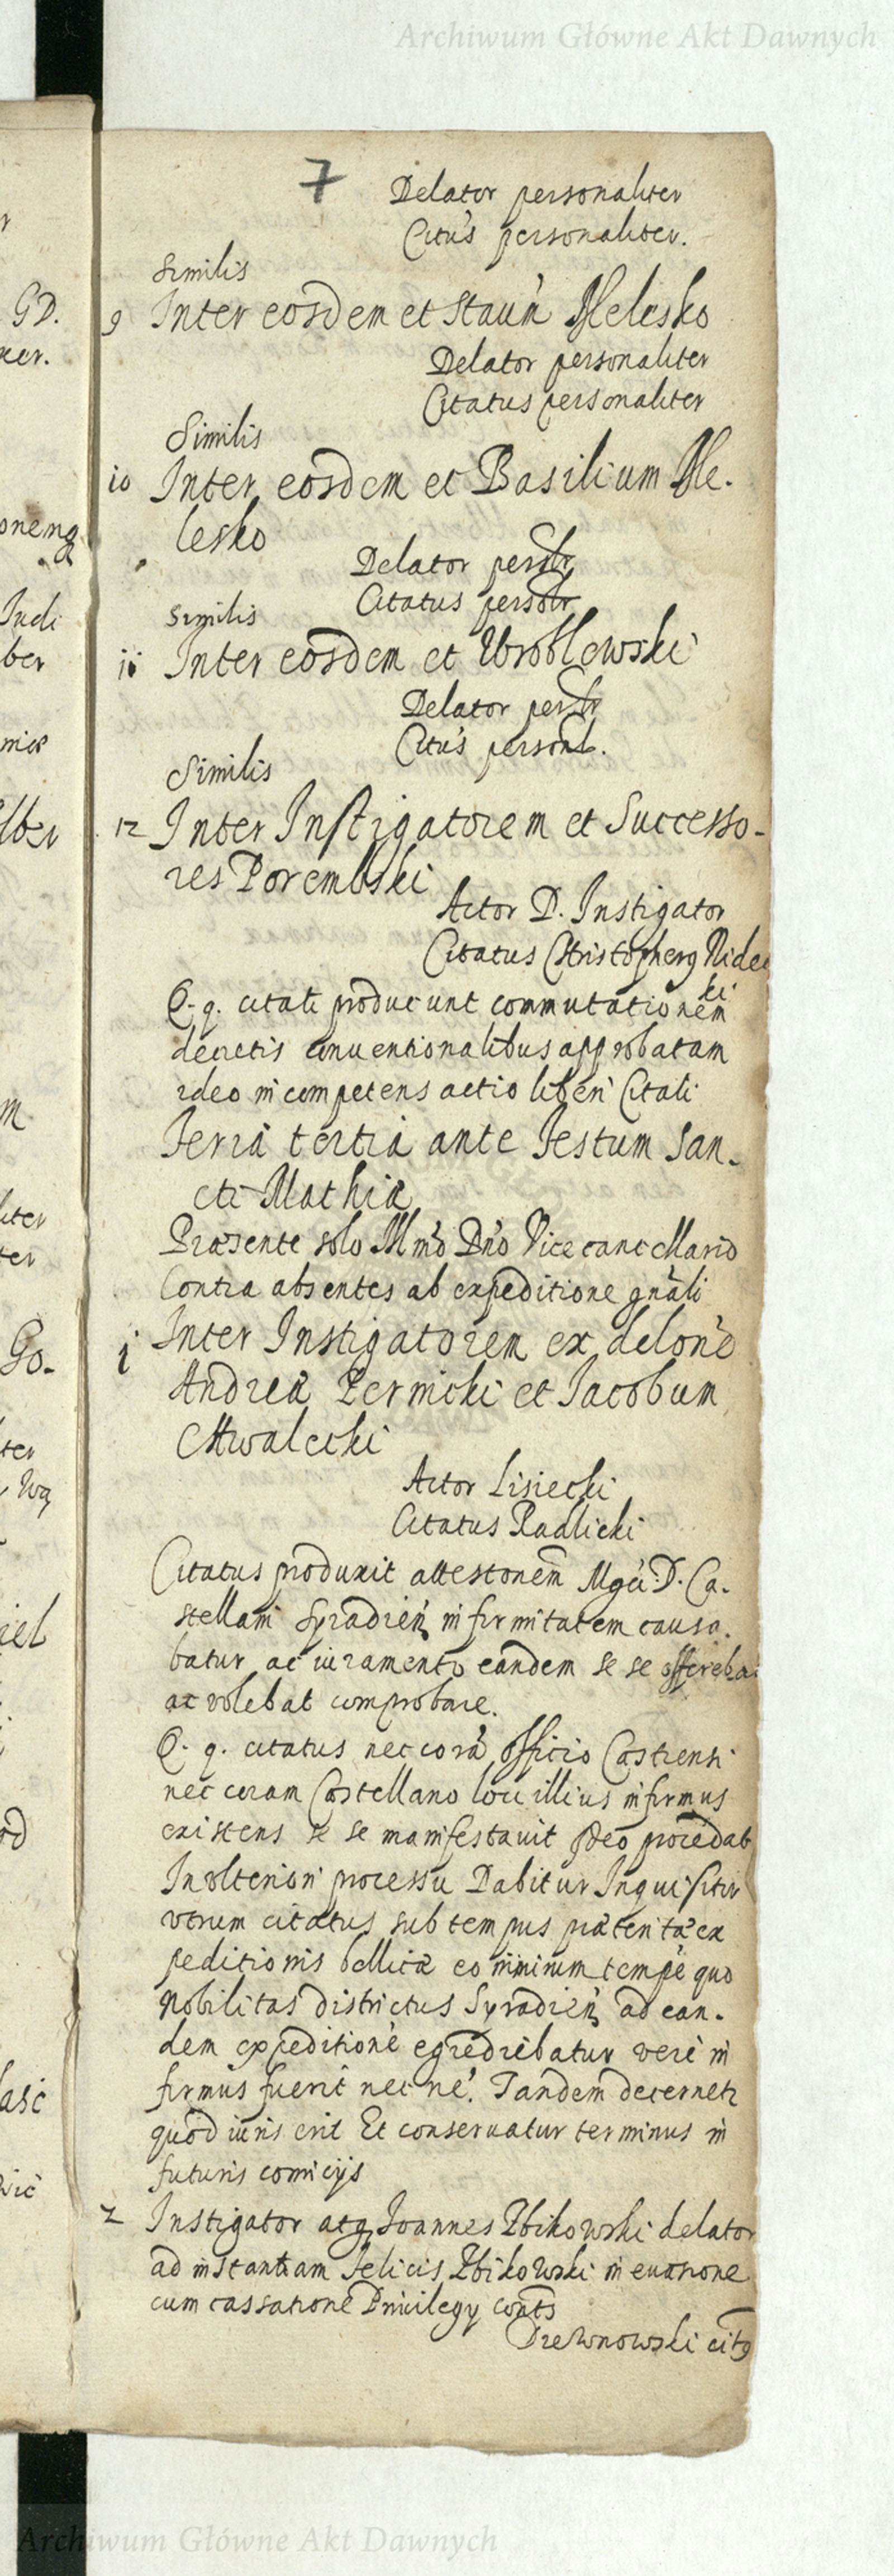 Archiwum Główne Akt Dawnych
7
Delator personaliter
Cittús personaliter.
Similis
9 Inter eosdem et Stau'n Melesko
Delator personaliter
Citatus personaliter
Similis
10 Inter eosdem et Basilium Me-
lesko
Delator personlr
Citatus personlr
Similis
ii Inter eosdem et Wroblewski
Delator personlr
Citús personl.
Similis
12 Inter Instigatorem et Successo-
res Porembski
Actor D. Instigator
Citatus Christopherg Nidec
ki
Q. q. citati producunt commutationem
decretis conuentionalibus approbatam
ideo incompetens actio liberi Citati
Feria tertia ante Festum San-
cti Mathiæ
Præsente solo Dno Vicecancellario
Contra absentes ab expeditione gnāli
i Inter Instigatorem ex delone
Andreæ et Jacobum
Chwalecki
Actor Lisiecki
Citatus Radlicki
Citatus produxit attestonem Mgci D. Ca-
stellani Syradien infirmitatem causa-
batur ac iuramento eandem se se offereba
ac volebat comprobare.
Q. q. citatus nec corā officio Castrensi
nec coram Castellano loci illius infirmus
existens se se manifestauit Ideo procedat
In vlteriori processu Dabitur Inquisitio
vtrum citatus sub tempus præterita ex
peditionis bellicæ eo nimirum tempe quo
Nobilitas districtus Syradien ad ean-
dem expeditione egrediebatur vere in
firmus fuerit nec ne. Tandem decernetr
quod iuris erit Et conseruatur terminus in
futuris comicijs
2 Instigator atq Joannes Zbikowski delator
ad instantiam Felicis Zbikowski in euasione
cum cassatione Priuilegy
Drewnowski citg
Archiwum Główne Akt Dawnych